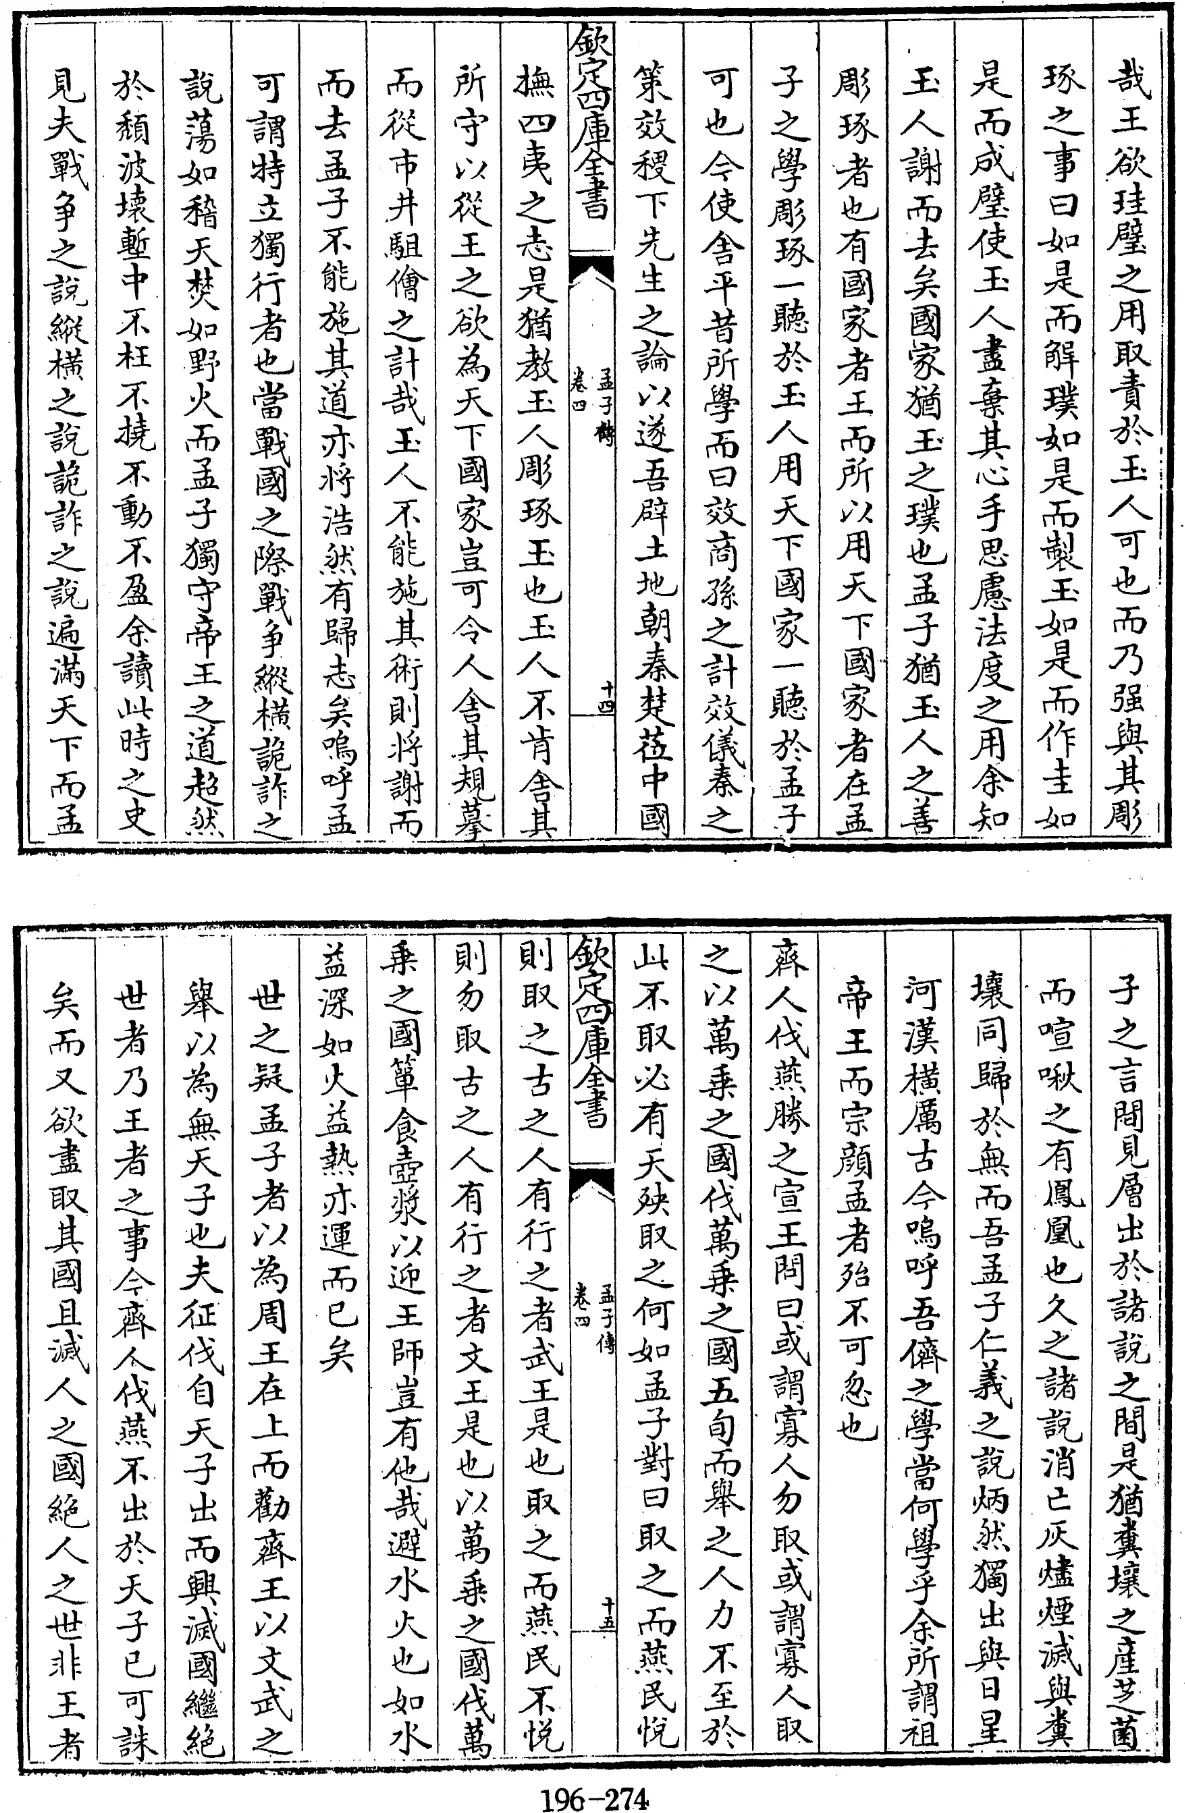 哉王欲珪璧之用取責於玉人可也而乃强與其彫
琢之事曰如是而解璞如是而製玉如是而作圭如
是而成璧使玉人盡棄其心手思慮法度之用余知
玉人謝而去矣國家猶玉之璞也孟子猶玉人之善
彫琢者也有國家者王而所以用天下國家者在孟
子之學彫琢一聽於玉人用天下國家一聽於孟子
可也今使舍平昔所學而曰效商孫之計效儀秦之
策效稷下先生之論以遂吾辟土地朝秦楚莅中國
欽定四庫全書
孟子傳
卷四
十四
撫四夷之志是猶教玉人彫琢玉也玉人不肯舍其
所守以從王之欲為天下國家豈可令人舍其規摹
而從市井駔儈之計哉玉人不能施其術則將謝而
而去孟子不能施其道亦將浩然有歸志矣嗚呼孟
可謂特立獨行者也當戰國之際戰争縱橫詭詐之
說蕩如稽天焚如野火而孟子獨守帝王之道超然
於頽波壞塹中不枉不撓不動不盈余讀此時之史
見夫戰争之說縱橫之說詭詐之說遍滿天下而孟
子之言間見層出於諸說之間是猶糞壤之産芝菌
而喧啾之有鳳凰也久之諸說消亡灰燼煙滅與糞
壤同歸於無而吾孟子仁義之說炳然獨出與日星
河漢橫厲古今嗚呼吾儕之學當何學乎余所謂祖
帝王而宗顔孟者殆不可忽也
齊人伐燕勝之宣王問曰或謂寡人勿取或謂寡人取
之以萬乗之國伐萬乗之國五旬而舉之人力不至於
此不取必有天殃取之何如孟子對曰取之而燕民悅
欽定四庫全書
孟子傳
卷四
十五
則取之古之人有行之者武王是也取之而燕民不悅
則勿取古之人有行之者文王是也以萬乗之國伐萬
乗之國簞食壺漿以迎王師豈有他哉避水火也如水
益深如火益熱亦運而已矣
世之疑孟子者以為周王在上而勸齊王以文武之
舉以為無天子也夫征伐自天子出而興滅國繼絶
世者乃王者之事今齊人伐燕不出於天子已可誅
矣而又欲盡取其國且滅人之國絶人之世非王者
196-274